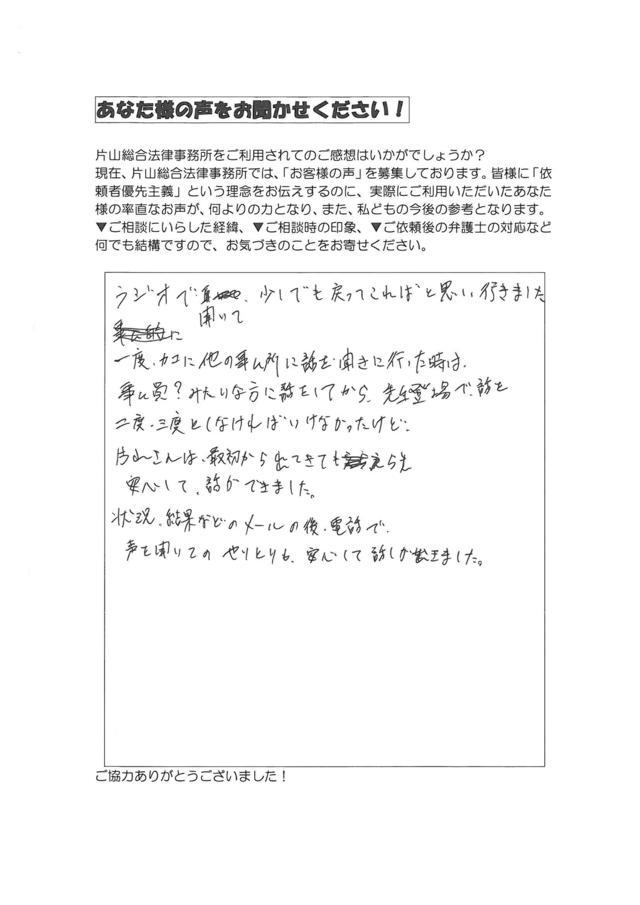 あなた様の声をお聞かせください！
片山総合法律事務所をご利用されてのご感想はいかがでしょうか？
現在、片山総合法律事務所では、「お客様の声」を募集しております。皆様に「依
頼者優先主義」という理念をお伝えするのに、実際にご利用いただいたあなた
様の率直なお声が、何よりの力となり、また、私どもの今後の参考となります。
▼ご相談にいらした経緯、▼ご相談時の印象、▼ご依頼後の弁護士の対応など
何でも結構ですので、お気づきのことをお寄せください。
ラジオで 、少しでも戻ってこればと思い行きました
聞いて
に
一度、カコに他の事ム所に話を聞きに行った時は、
事ム員？みたいな方に話をしてから、先生登場で、話を
二度、三度としなければいけなかったけど、
片山さんは、最初から出てきてもらえ
安心して、話ができました。
状況、結果などのメールの後、電話で、
声を聞いてのやりとりも、安心して話しが出きました。
ご協力ありがとうございました！